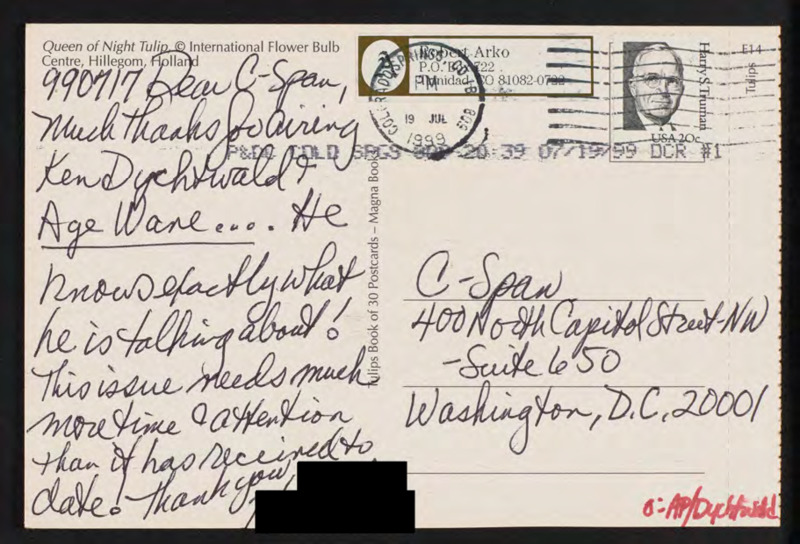 Queen of Night Tulip, © International Flower Bulb
Centre, Hillegom, Holland
990717 Dear C-Span,
Much thanks for airing
Ken Dychtwald &
Age Wave.... He
knows exactly what
he is talking about!
This issue needs much
more time & attention
than it has received to
date! Thank you,
Tulips Book of 30 Postcards – Magna Books
Robert Arko
P.O. Box 722
Trinidad, CO 81082-0722
COLORADO SPRINGS CO
PM
19 JUL
1999
P&DC COLD SPGS 809 20:39 07/19/99 DCR #1
Harry S. Truman
USA 20c
E14
Tulips
C-Span
400 North Capitol Street-NW
-Suite 650
Washington, D.C. 20001
o-AP/Dychtwald